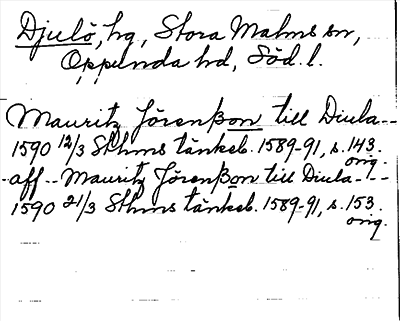 Djulö, hg, Stora Malms sn,
Oppunda hd, Söd. l.
Mauritz Jörenßon till Diula--
1590 12/3 Sthms tänkeb. 1589-91, s. 143.
orig.
-aff-- Mauritz Jörenßon till Diula---
1590 21/3 Sthms tänkeb. 1589-91, s. 153.
orig.